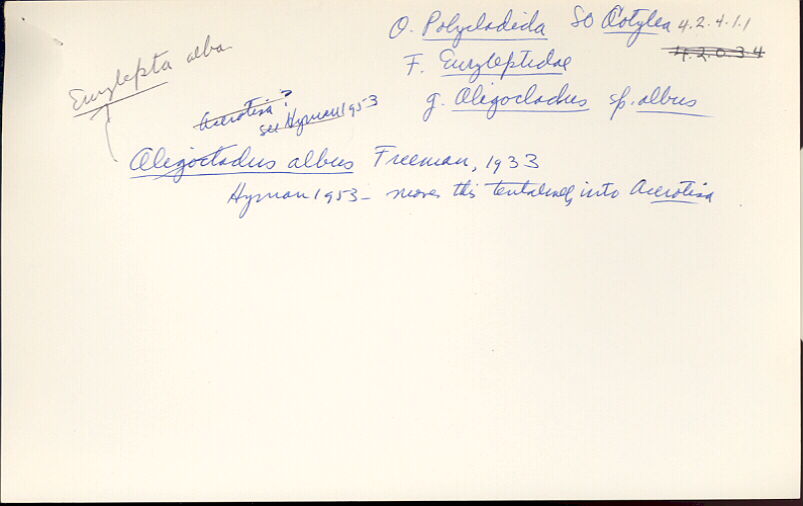 O. Polycladida SO Cotylea 4.2.4.1.1
4.2.0.3.4
F. Euryleptidae
g. Oligocladus sp. albus
Eurylepta alba
Acerotisa?
see Hyman 1953
Oligocladus albus Freeman, 1933
Hyman 1953 – moves this tentatively into Acerotisa